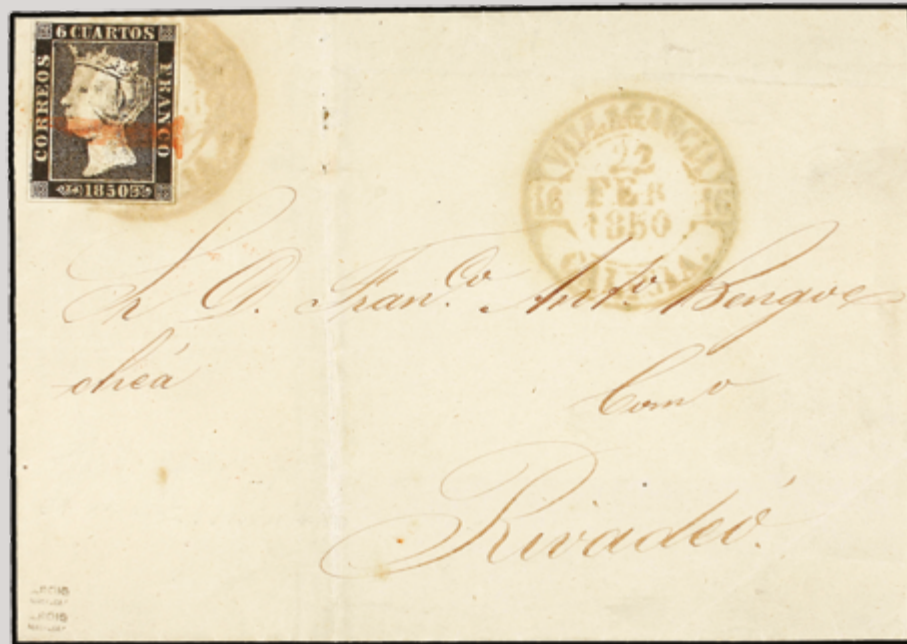 6 CUARTOS
CORREOS
FRANCO
1850
VILLAGARCIA
16 16
22
FEB
1850
GALICIA.
Sr D. Franco. Anto. Bengoe
cheá
Como
Rivadeó.